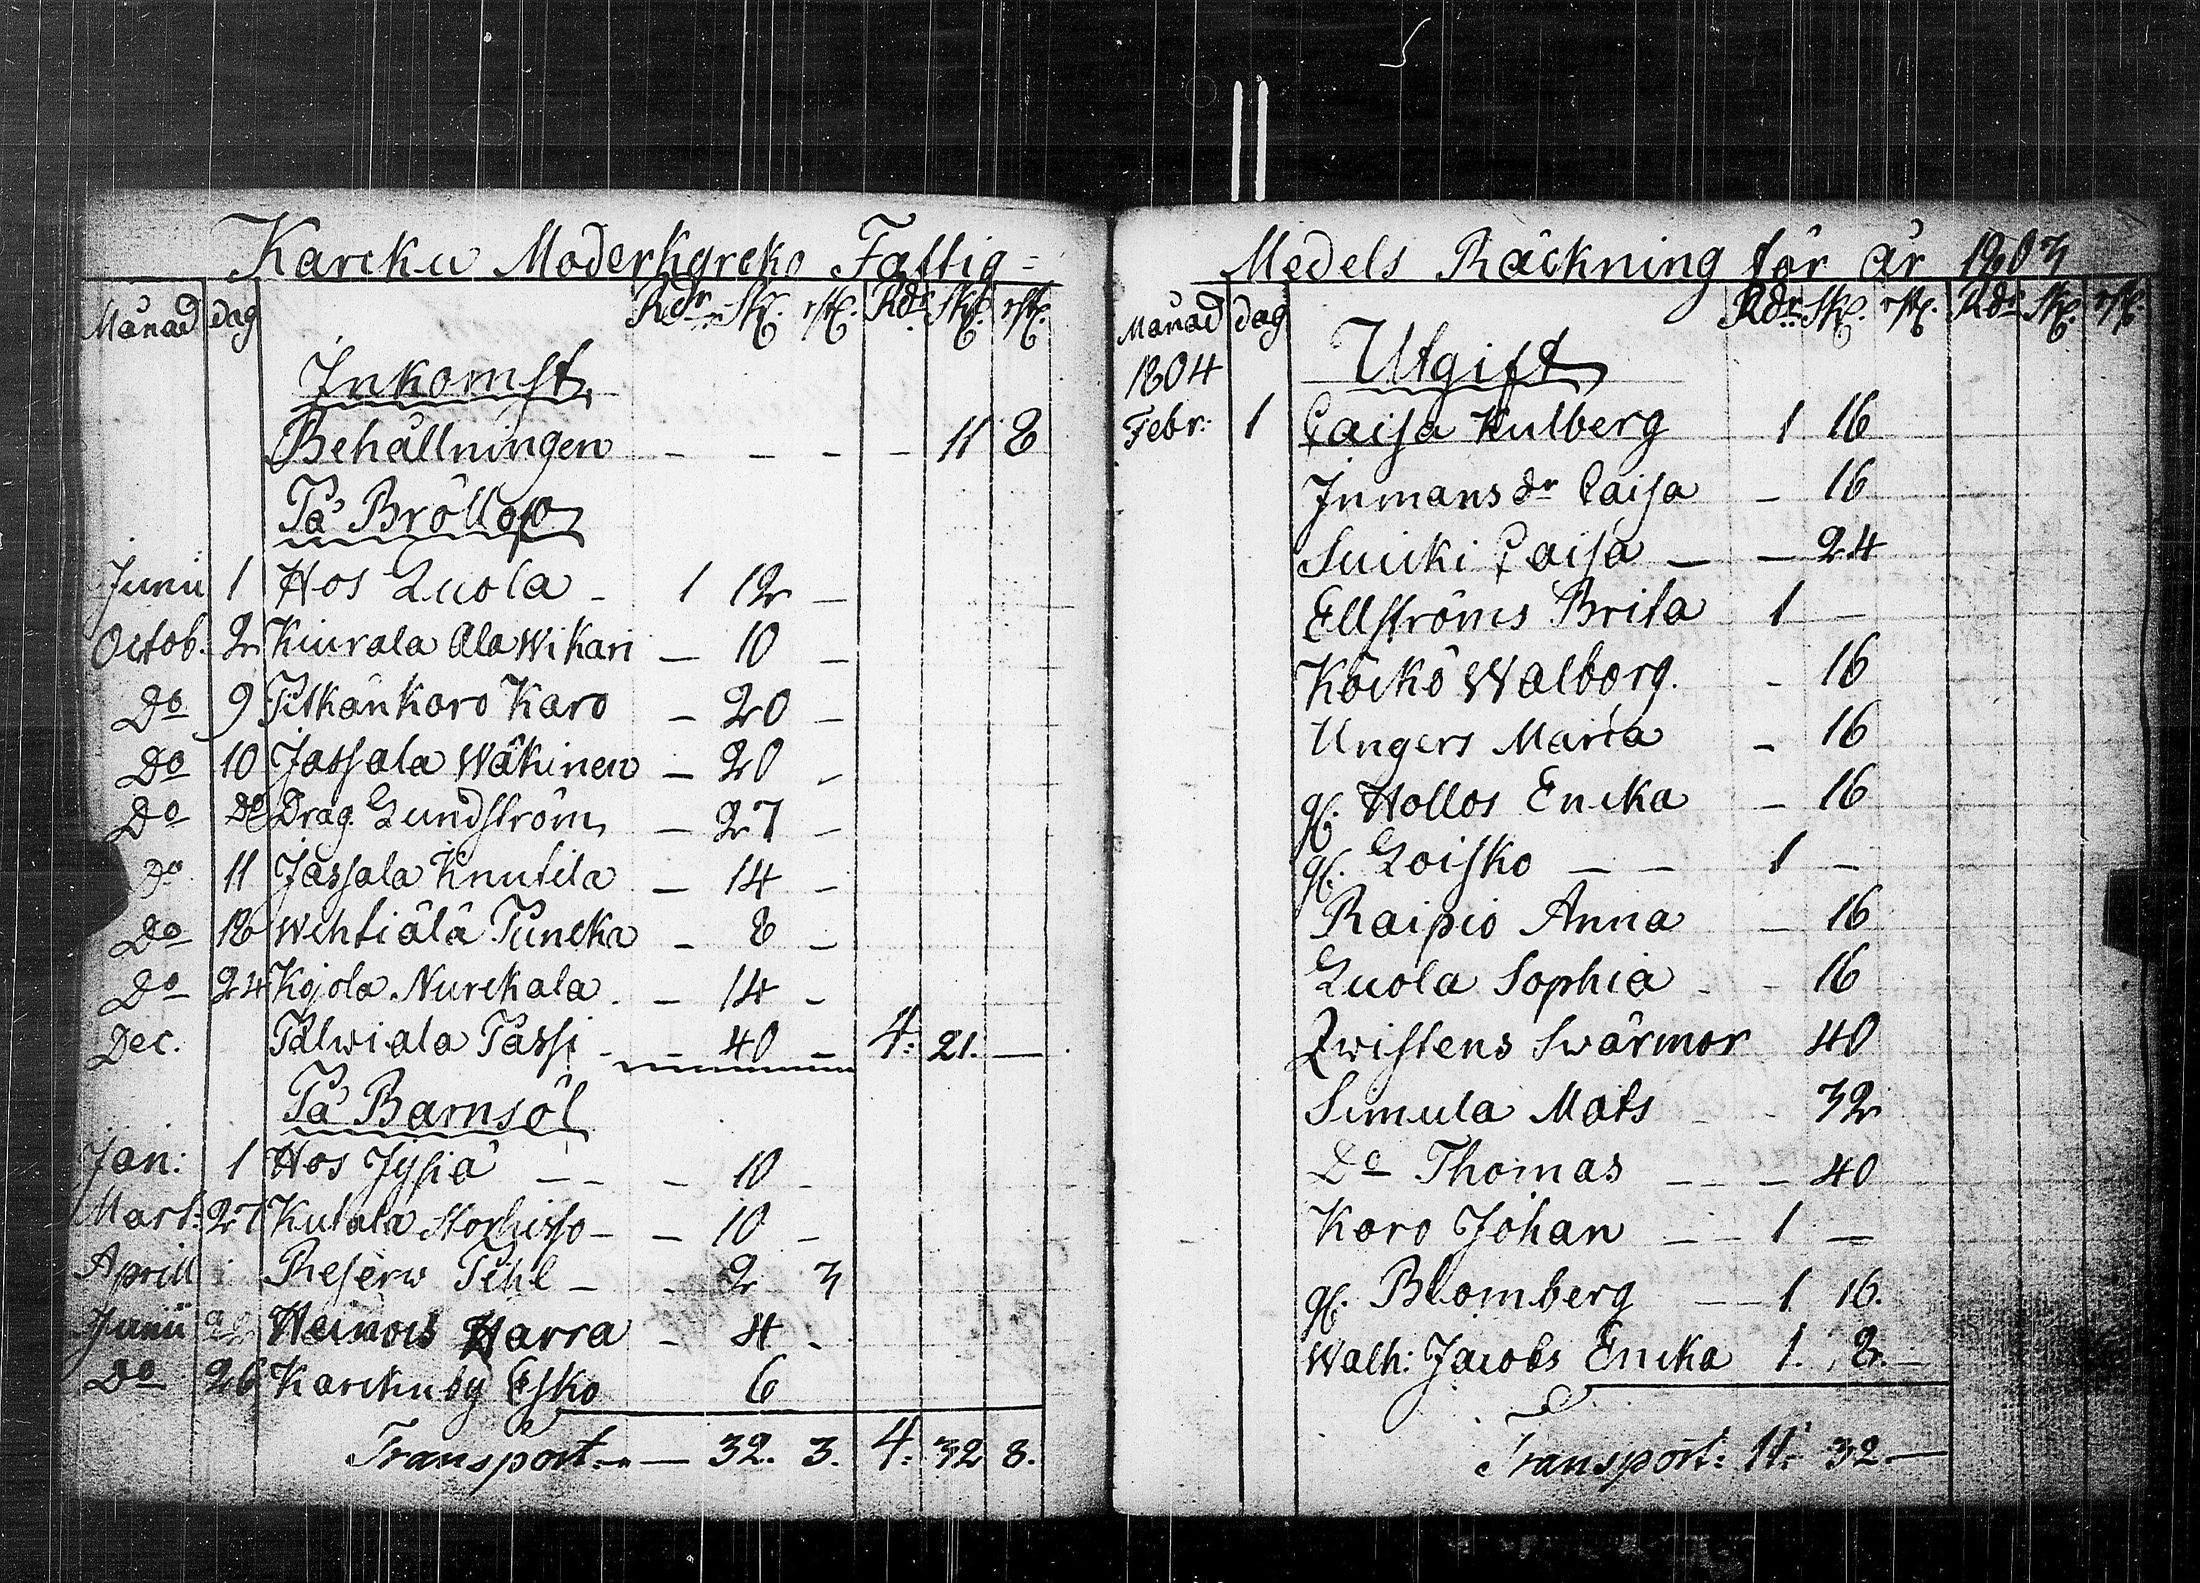 Karcku Moderkyrcko Fattig=
Månad dag Rdr Sk. rst. Rdr Sk. rst.
Inkomst
Behållningen - - - - 11 8
På Bröllop
Junii 1 Hos Luola - 1 12 -
Octob. 2 Kiurala Ala Wikari - 10 -
Do 9 Pitkänkoro Karo - 20 -
Do 10 Jassala Wäkinen - 20 -
Do Do Drag. Lundström - 27 -
Do 11 Jassala Knutila - 14 -
Do 18 Wehtiälä Puncka - 8 -
Do 24 Kojola Nurckala - 14 -
Dec. Palwiala Passi - - 40 - 4: 21. -
På Barnsöl
Jan: 1 Hos Jysiä - - - 10 -
Mart: 27 Kutala Storhisso - - 10 -
Aprill Reserv Pihl - - 2 3
Junii Heinois Harra - 4 -
Do 26 Karckuby Esko 6
Transport - - 32. 3. 4: 32 8.
Medels Räckning för år 1803
Månad dag Rdr Sk. rst. Rdr Sk. rst.
1804
Utgift
Febr: 1 Caisa Kulberg 1 16
Inmans dr Caisa - 16
Suicki Caisa - - 24
Ellströms Brita 1 -
Köckö Walborg. - 16
Ungers Maria - 16
gl. Hollos Ericka - 16
gl. Loisko - - 1 -
Raipio Anna - 16
Luola Sophia - - 16
Qwistens Swärmor 40
Simula Mats - - 32
Do Thomas - - - 40
Karo Johan - - 1 -
gl. Blomberg - - 1 16.
Walh: Jacobs Ericka 1. 8. -
Transport: 11: 32. -